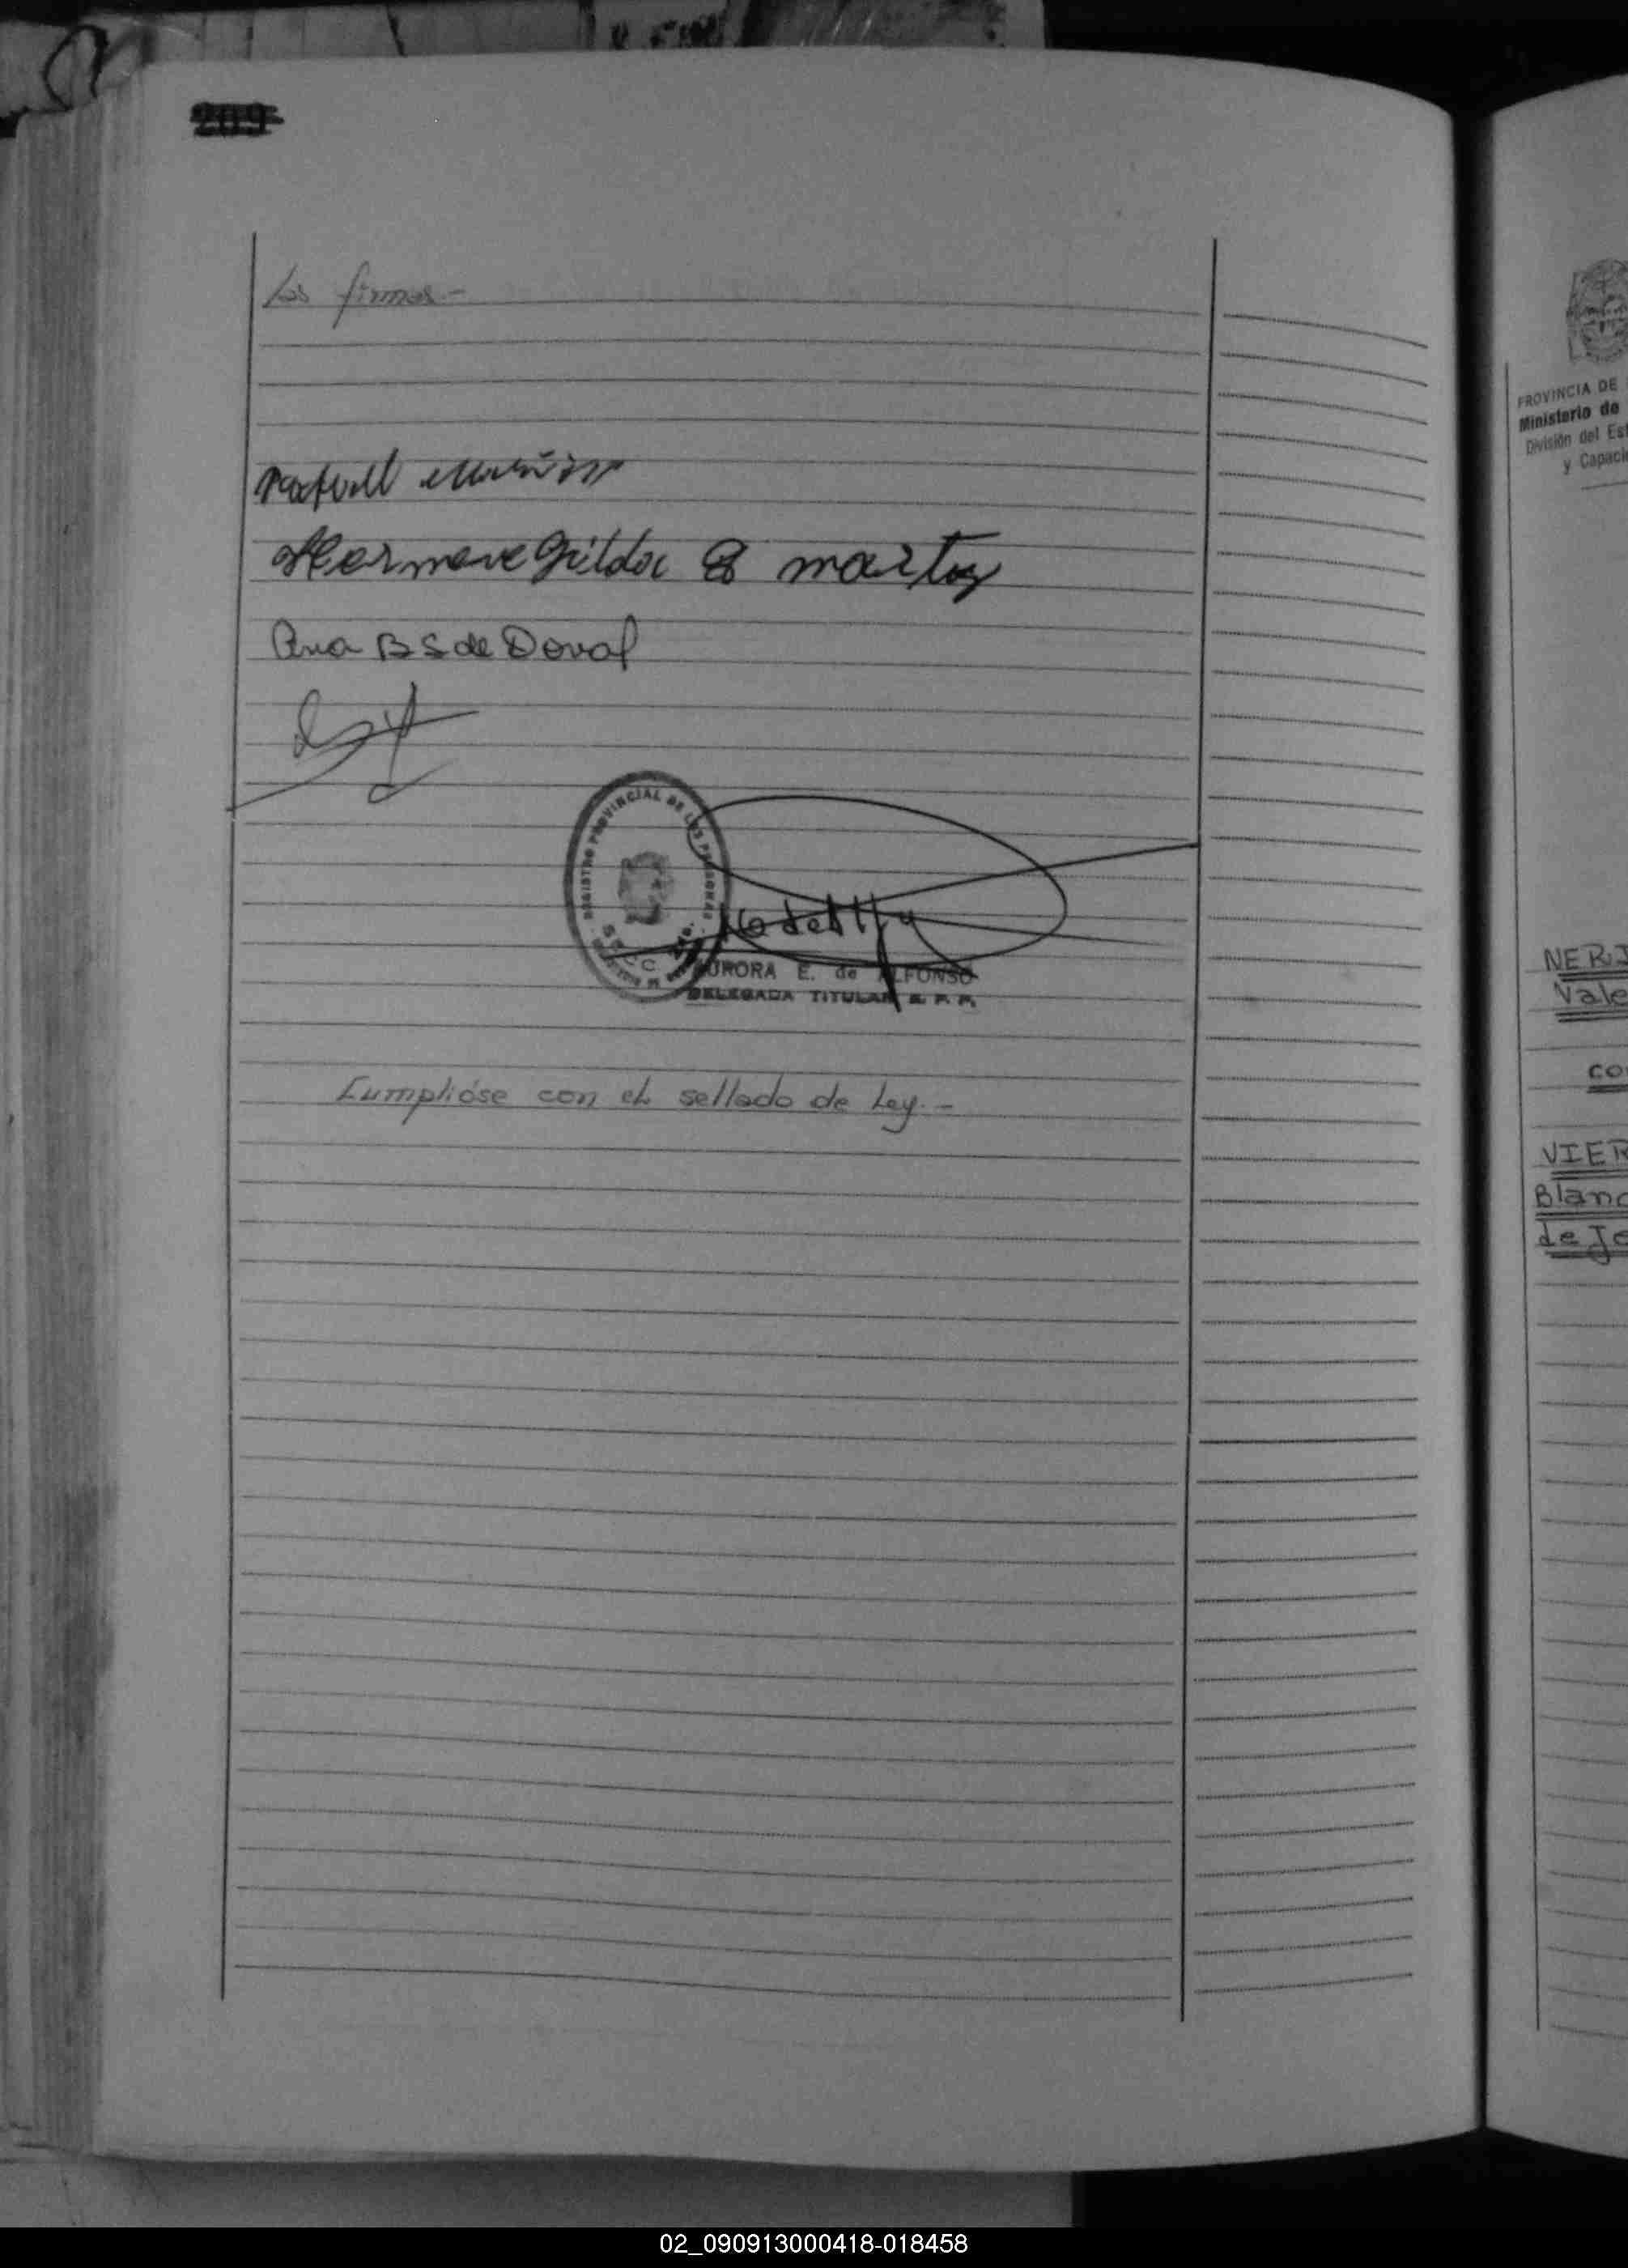 209
Las firmas.-
Hermenegilda E martos
Ana B S de Doval
REGISTRO PROVINCIAL DE LAS PERSONAS
SECC.
AURORA E. de ALFONSO
DELEGADA TITULAR R. P. P.
Cumplióse con el sellado de Ley.-
PROVINCIA DE
Ministerio de
División del Est
y Capaci
NERI
Vale
co
VIER
Blanc
de Je
02_090913000418-018458